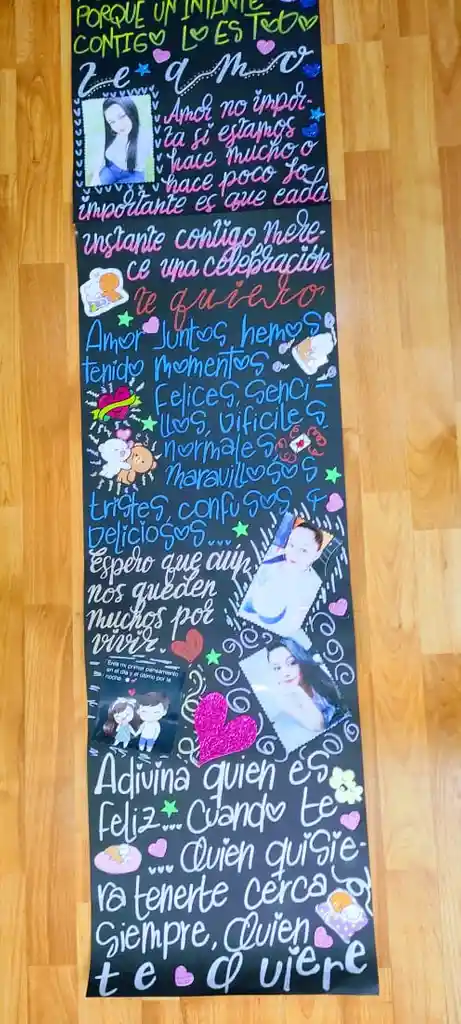 PORQUE UN INSTANTE
CONTIGO LO ES TODO
Te amo
Amor no impor-
ta si estamos
hace mucho o
hace poco lo
importante es que cada
instante contigo mere-
ce una celebración
te quiero
Amor Juntos hemos
tenido momentos
Felices, Senci-
llos, Dificiles
normales
maravillosos
tristes, confusos y
Deliciosos...
Espero que aún
nos queden
muchos por
vivir.
Eres mi primer pensamiento
en el día y el último por la
noche.
Adivina quien es
Feliz... Cuando te
... Quien quisie-
ra tenerte cerca
Siempre, Quien
te Quiere